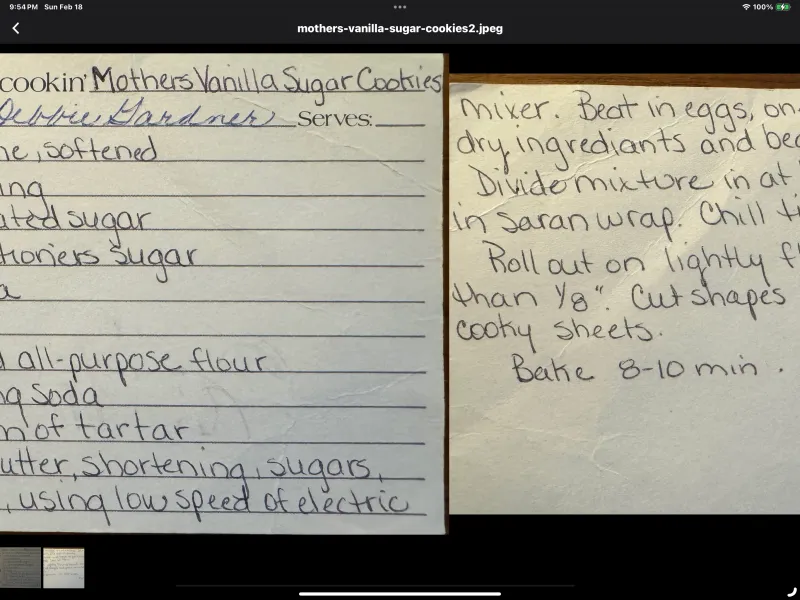 9:54 PM Sun Feb 18
100%
mothers-vanilla-sugar-cookies2.jpeg
cookin' Mothers Vanilla Sugar Cookies
Debbie Gardner Serves:
ne, softened
ing
ated sugar
tioners sugar
a
all-purpose flour
ng soda
m of tartar
utter, shortening, sugars,
, using low speed of electric
mixer. Beat in eggs, on
dry ingrediants and bea
Divide mixture in at
in saran wrap. Chill
Roll out on lightly fl
than 1/8". Cut shapes
cooky sheets.
Bake 8-10 min.